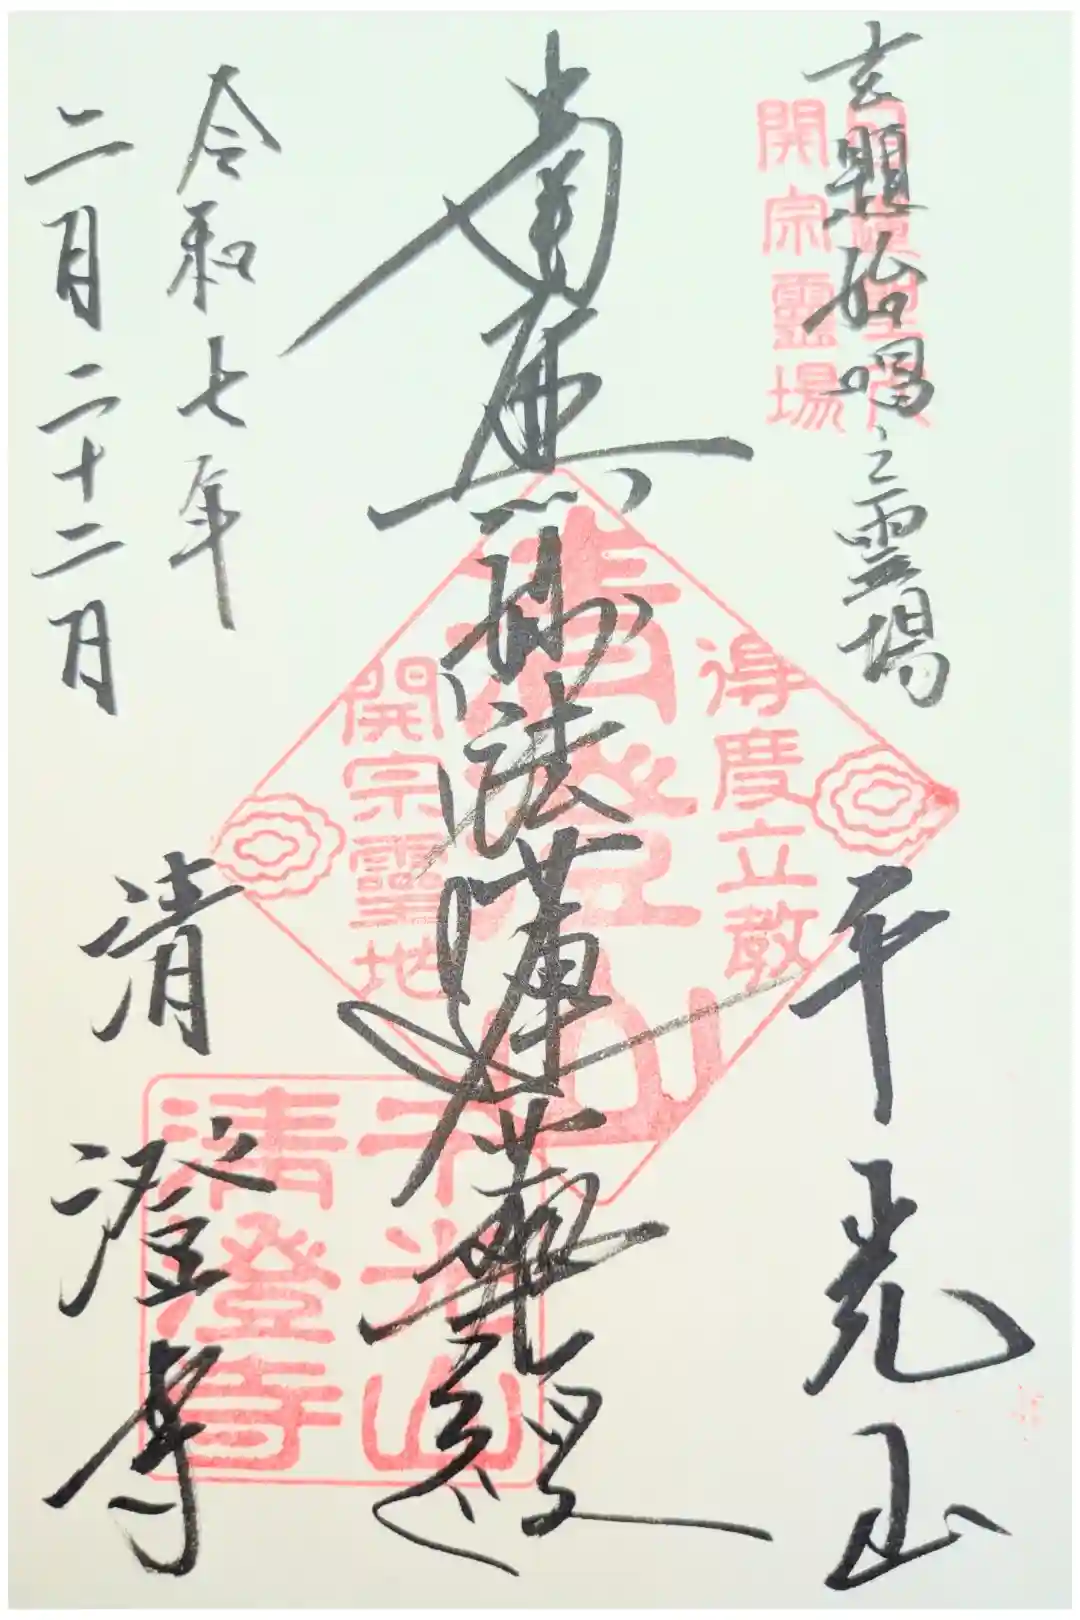 玄題始唱之霊場
開宗靈場
千光山
南無妙法蓮華経
清澄山
得度立教
開宗靈地
令和七年
二月二十二日
清澄寺
千光山
清澄寺